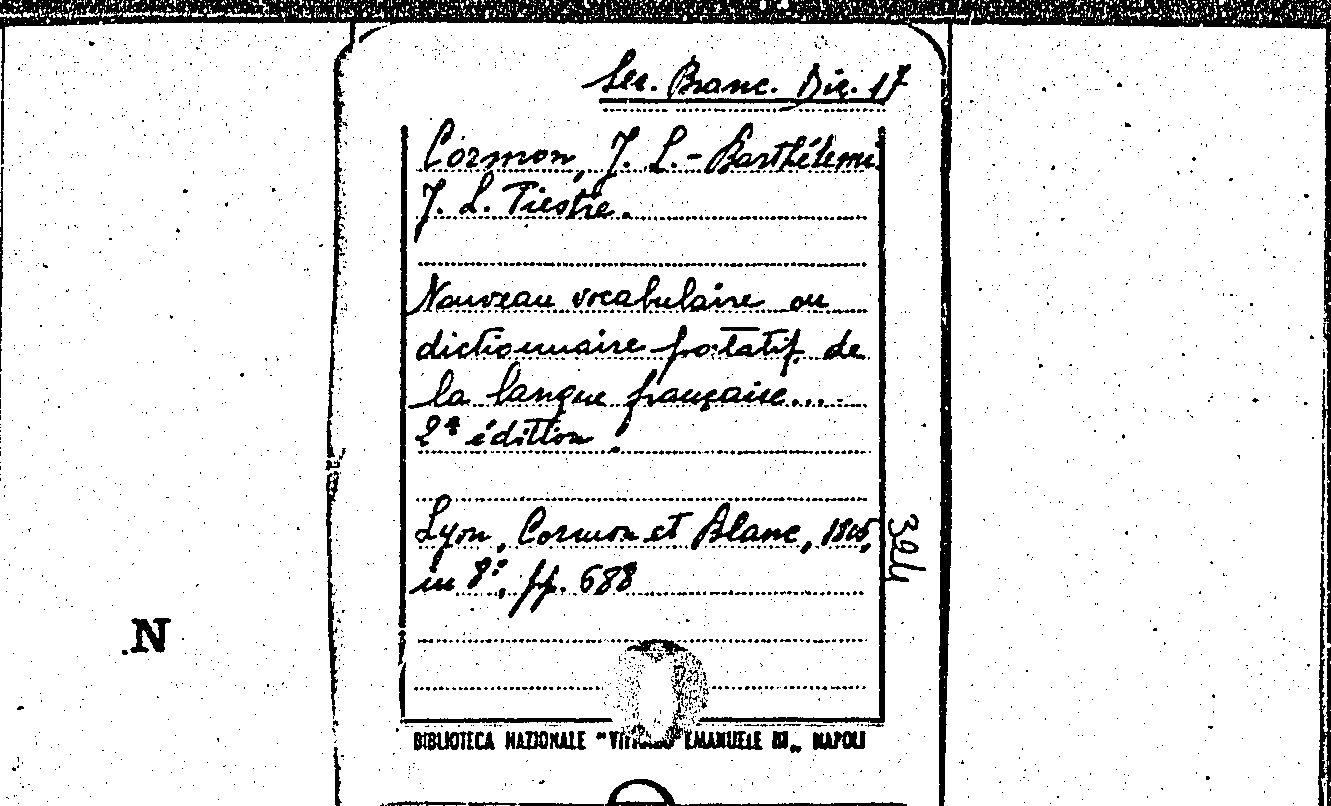 Sez. Branc. Diz. 17
Cormon, J. L.-Barthélemi
J. L. Piestre.
Nouveau vocabulaire ou
dictionnaire potatif de
la langue française....
2ª édition.
Lyon, Cormon et Blanc, 1805,
in 8º, pp. 688
N
BIBLIOTECA NAZIONALE "VITTORIO EMANUELE III" NAPOLI